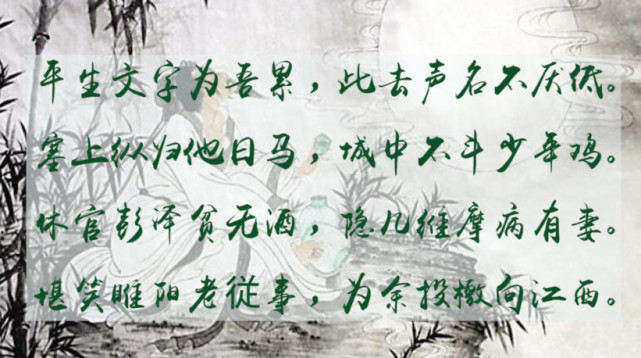 平生文字为吾累，此去声名不厌低。
塞上纵归他日马，城中不斗少年鸡。
休官彭泽贫无酒，隐几维摩病有妻。
堪笑睢阳老従事，为余投檄向江西。